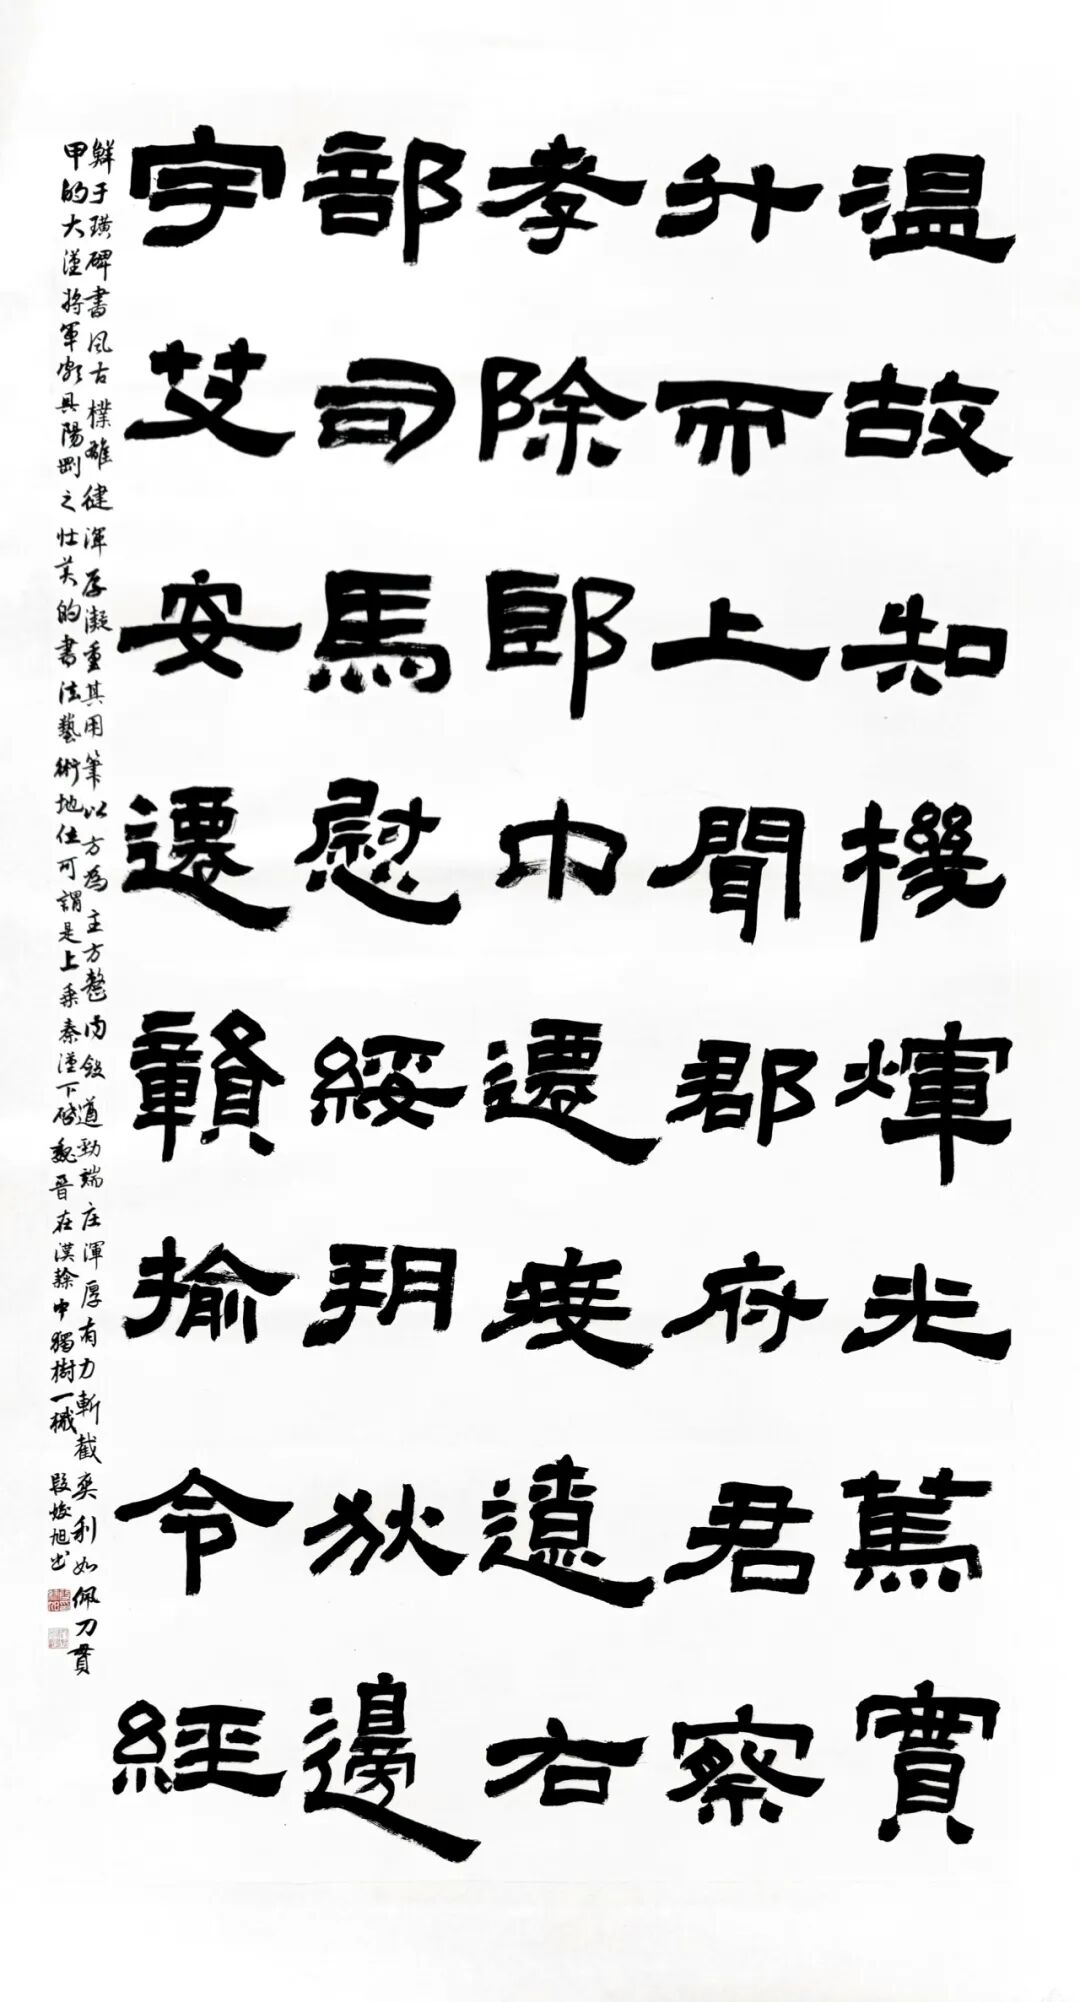 温故知機煇光篤實
升而上聞郡府君察
孝除郎中遷度遼右
部司馬慰綏朔狄邊
宇艾安遷贛揄令經
鮮于璜碑書風古樸雄健渾厚凝重其用筆以方為主方整內斂遒勁端庄渾厚有力斬截爽利如佩刀貫
甲的大漢將軍彰具陽剛之壯美的書法藝術地位可謂是上乘秦漢下啟魏晉在漢隸中獨樹一幟 段姣旭书